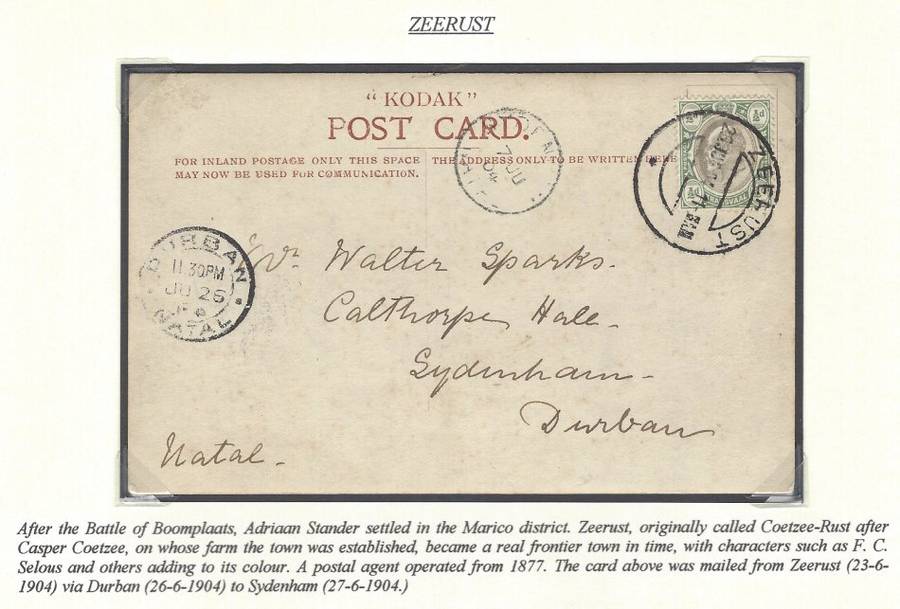 ZEERUST
"KODAK"
POST CARD.
FOR INLAND POSTAGE ONLY THIS SPACE
MAY NOW BE USED FOR COMMUNICATION.
THE ADDRESS ONLY TO BE WRITTEN HERE
ZEERUST
½d ½d
DURBAN
11.30PM
JU 26
NATAL
Walter Sparks.
Calthorpe Hall.
Sydenham
Durban
Natal
After the Battle of Boomplaats, Adriaan Stander settled in the Marico district. Zeerust, originally called Coetzee-Rust after
Casper Coetzee, on whose farm the town was established, became a real frontier town in time, with characters such as F. C.
Selous and others adding to its colour. A postal agent operated from 1877. The card above was mailed from Zeerust (23-6-
1904) via Durban (26-6-1904) to Sydenham (27-6-1904.)